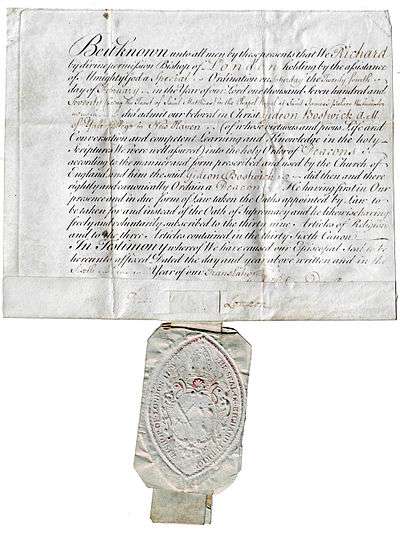 Be it known unto all men by these presents that We Richard
by divine permission Bishop of London holding by the assistance
of Almighty God a Special Ordination on Saturday the Twenty fourth
day of February in the Year of our Lord one thousand Seven hundred and
Seventy being the Feast of Saint Matthias in the Royal Chapel at Saint James's Palace Westminster
did admit our beloved in Christ Gideon Bostwick A.M.
of Yale College in New Haven (of whose virtuous and pious Life and
Conversation and competent Learning and Knowledge in the holy
Scriptures We were well assured) into the holy Order of Deacons
according to the manner and form prescribed and used by the Church of
England and him the said Gideon Bostwick did then and there
rightly and canonically Ordain a Deacon He having first in Our
presence and in due form of Law taken the Oaths appointed by Law to
be taken for and instead of the Oath of Supremacy and he likewise having
freely and voluntarily subscribed to the thirty nine Articles of Religion
and to the three Articles contained in the thirty Sixth Canon
In Testimony whereof We have caused our Episcopal Seal to be
hereunto affixed Dated the day and year above written and in the
Sixth Year of our Translation
London